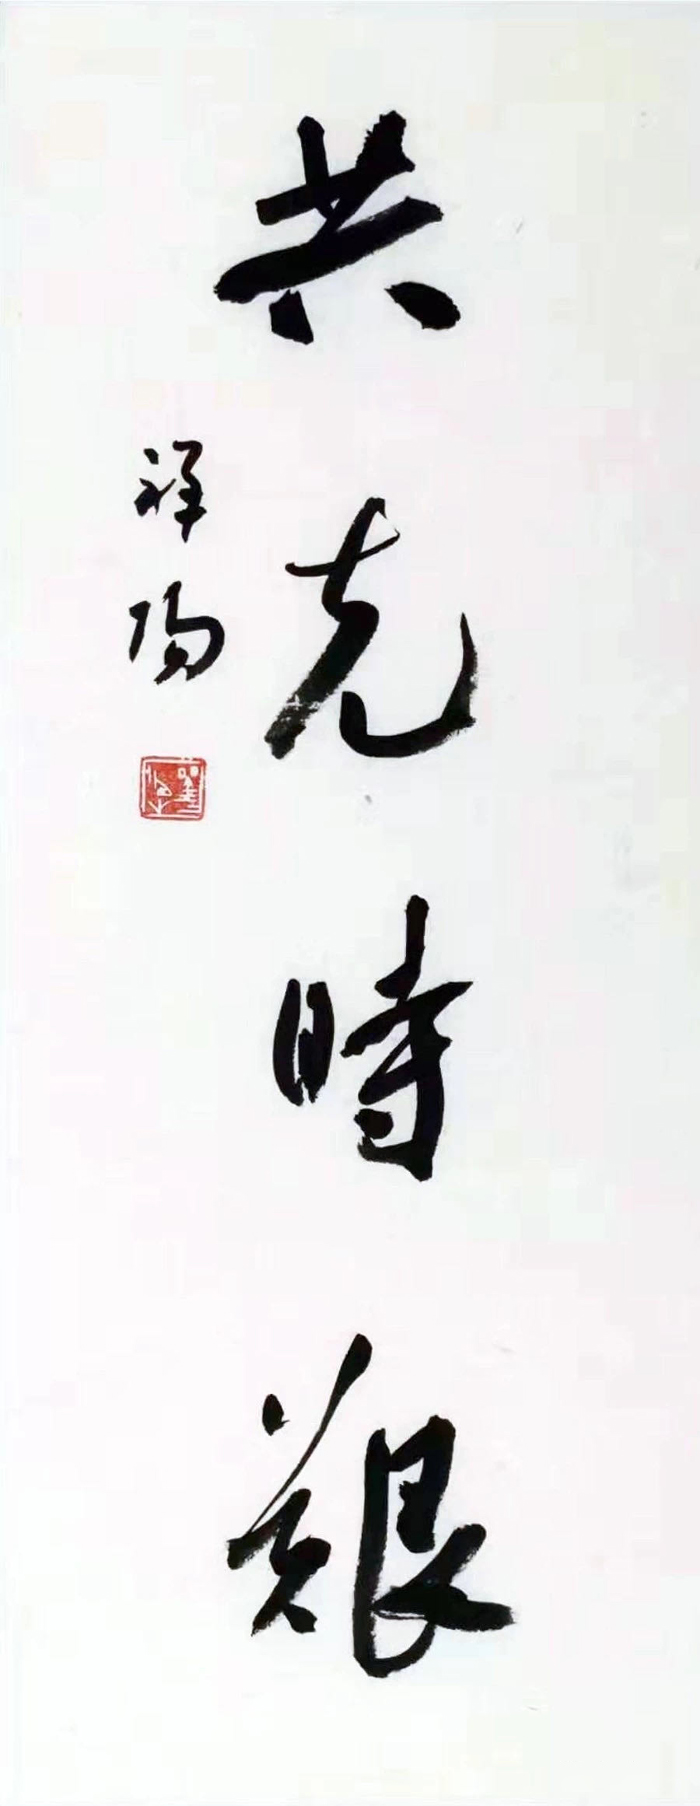 共克時艱
祥陽